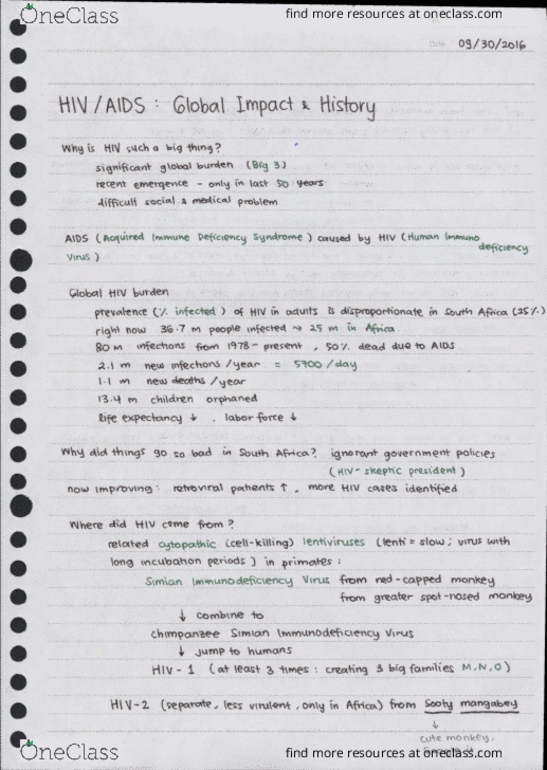 OneClass
find more resources at oneclass.com
Date 09/30/2016
HIV/AIDS : Global Impact & History
Why is HIV such a big thing?
significant global burden (Big 3)
recent emergence - only in last 50 years
difficult social & medical problem
AIDS (Acquired Immune Deficiency Syndrome) caused by HIV (Human Immuno
deficiency
Virus)
Global HIV burden
prevalence (% infected) of HIV in adults is disproportionate in South Africa (25%)
right now 36.7 m people infected → 25 m in Africa
80 m infections from 1978 - present, 50% dead due to AIDS
2.1 m new infections /year = 5700 /day
1.1 m new deaths /year
13.4 m children orphaned
life expectancy ↓ , labor force ↓
Why did things go so bad in South Africa? ignorant government policies
(HIV-skeptic president)
now improving: retroviral patients ↑ , more HIV cases identified
Where did HIV come from?
related cytopathic (cell-killing) lentiviruses (lenti = slow; virus with
long incubation periods) in primates :
Simian Immunodeficiency Virus from red-capped monkey
from greater spot-nosed monkey
↓ combine to
chimpanzee Simian Immunodeficiency Virus
↓ jump to humans
HIV-1 (at least 3 times : creating 3 big families M,N,O)
HIV-2 (separate, less virulent, only in Africa) from Sooty mangabey
↓
cute monkey.
OneClass
find more resources at oneclass.com